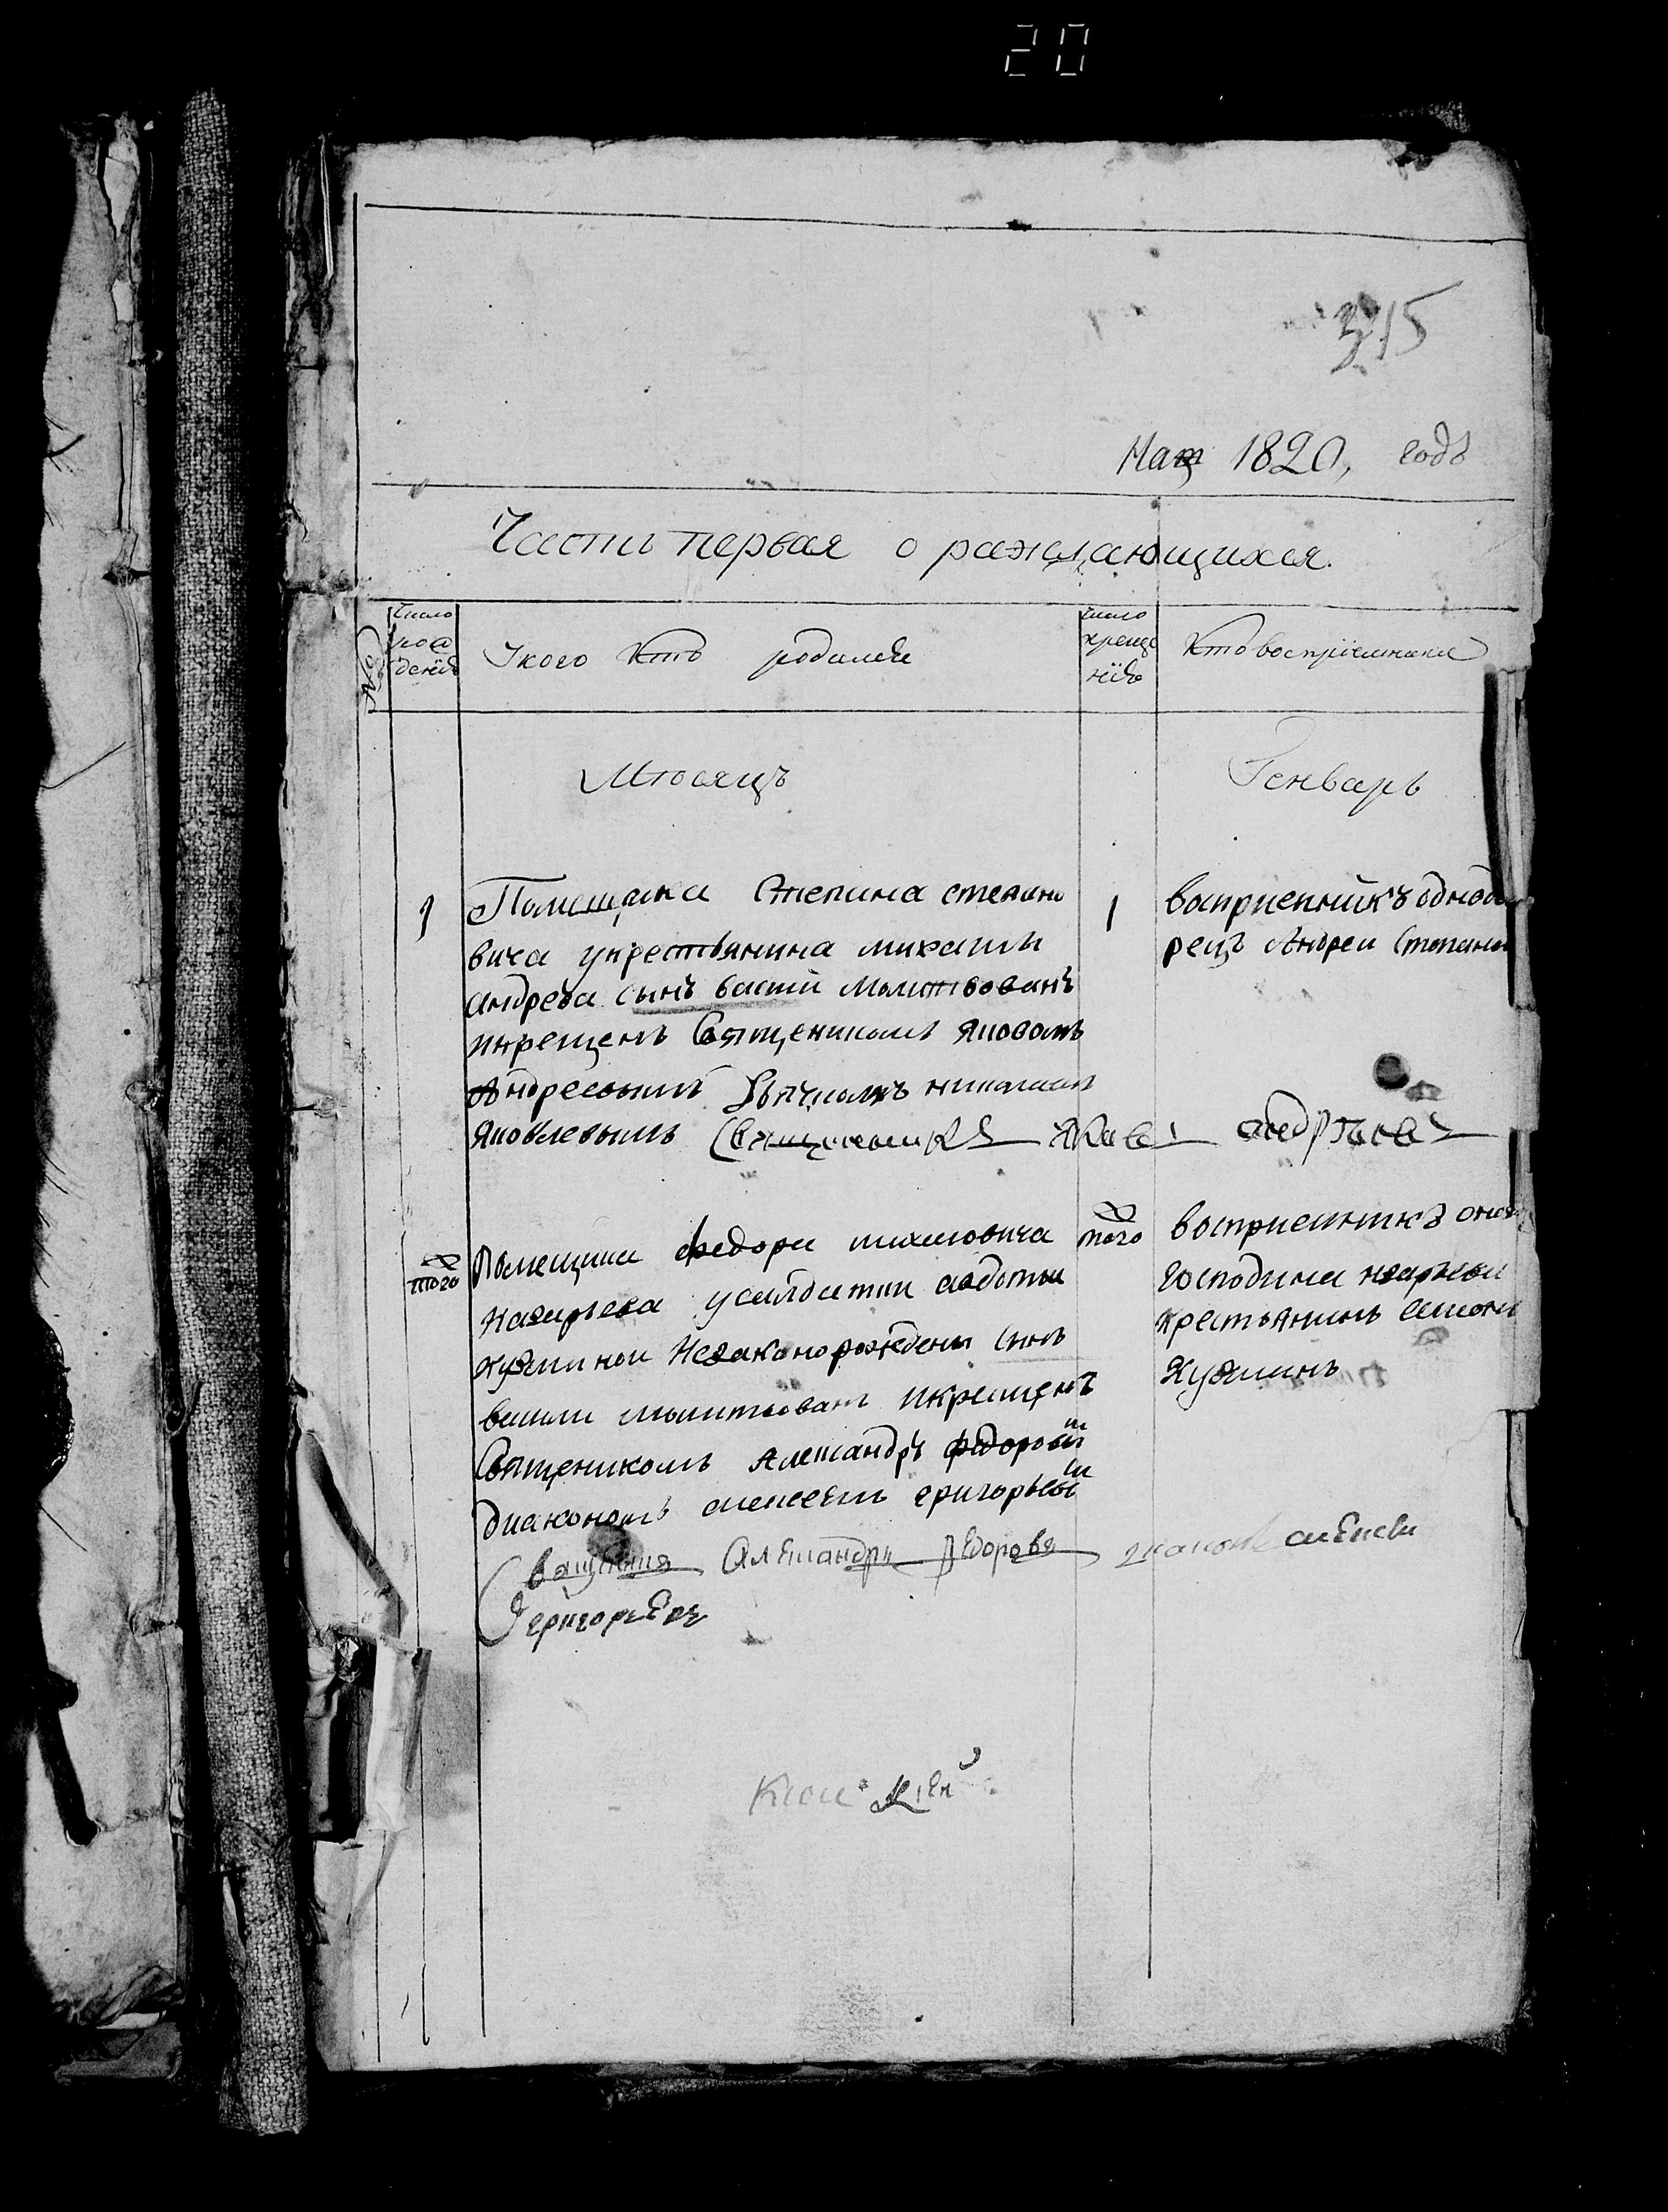 20
315
На 1820, годъ
Часть первая о раждающихся.
№
Число рождения
У кого кто родился
Число крещения
Кто восприемники
Мѣсяцъ Генварь
1
Помещика Степана степано
вича укрестьянина михаилы
андрева сынъ васили Молитвованъ
икрещенъ Священикомъ яковомъ
Андреевымъ дьячкомъ николаем
яковлевымъ Священникъ Яковъ андрѣевъ
1
восприемникъ однод
рецъ Андреи Степано
того
Помещика федора михаиловича
назарьева усолдатки авдотьи
кузминои Незаконорождены Сынъ
молитвованъ икрещенъ
Священикомъ Александръ федоровы
диакономъ алексеем григорьевы
Александръ федоровъ алексеи
григорьевъ
того
восприемникъ онаг
господина назарьева
крестьянинъ семенъ
Кузминъ